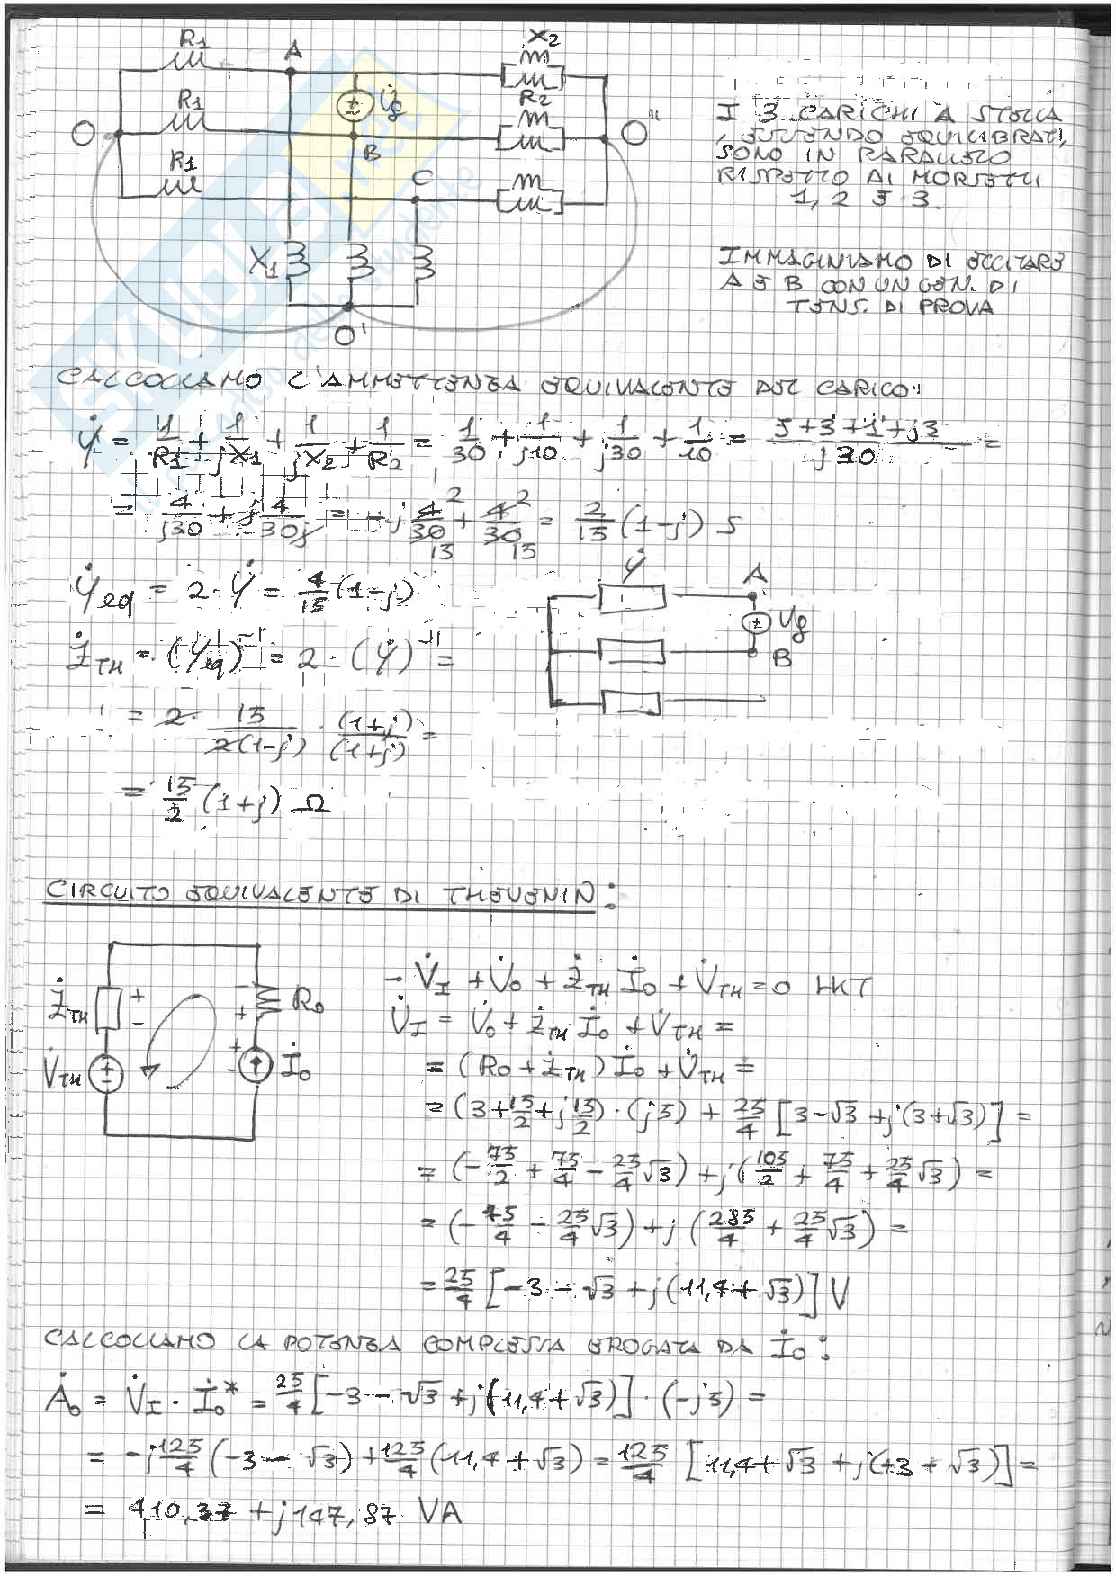 R1 A X2
R1 Vg R2
O B O''
R1 C
X1
O'
I 3 CARICHI A STELLA
, ESSENDO EQUILIBRATI,
SONO IN PARALLELO
RISPETTO AI MORSETTI
1, 2 E 3.
IMMAGINIAMO DI ECCITARE
A E B CON UN GEN. DI
TENS. DI PROVA
CALCOLIAMO L'AMMETTENZA EQUIVALENTE DEL CARICO:
Ẏ = 1/R1 + 1/jX1 + 1/jX2 + 1/R2 = 1/30 + 1/j10 + 1/j30 + 1/10 = j+3+1+j3/j30 =
= 4/j30 + j4/30j = -j4/30 + 4/30 = 2/15 (1-j) S
Ẏeq = 2·Ẏ = 4/15 (1-j)
ŻTH = (Ẏeq)⁻¹ = 2·(Ẏ)⁻¹ =
= 2· 15/2(1-j) · (1+j)/(1+j) =
= 15/2 (1+j) Ω
Ẏ A
Vg
B
CIRCUITO EQUIVALENTE DI THEVENIN:
ŻTH + - - + R0
V̇TH + - İ0
-V̇I + V̇0 + ŻTH İ0 + V̇TH = 0 LKT
V̇I = V̇0 + ŻTH İ0 + V̇TH =
= (R0 + ŻTH) İ0 + V̇TH =
= (3 + 15/2 + j15/2)·(j5) + 25/4 [3-√3 + j(3+√3)] =
= (-75/2 + 75/4 - 25/4 √3) + j(105/2 + 75/4 + 25/4 √3) =
= (-75/4 - 25/4 √3) + j(285/4 + 25/4 √3) =
= 25/4 [-3 - √3 + j(11,4 + √3)] V
CALCOLIAMO LA POTENZA COMPLESSA EROGATA DA İ0:
Ȧ0 = V̇I · İ0* = 25/4 [-3 - √3 + j(11,4 + √3)] · (-j5) =
= -j125/4 (-3 - √3) + 125/4 (11,4 + √3) = 125/4 [11,4 + √3 + j(+3 + √3)] =
= 410,37 + j147,87 VA